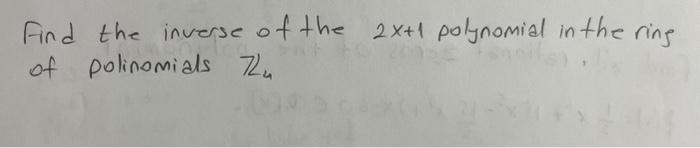 Find the inverse of the 2x+1 polynomial in the ring
of polinomials ℤ₄